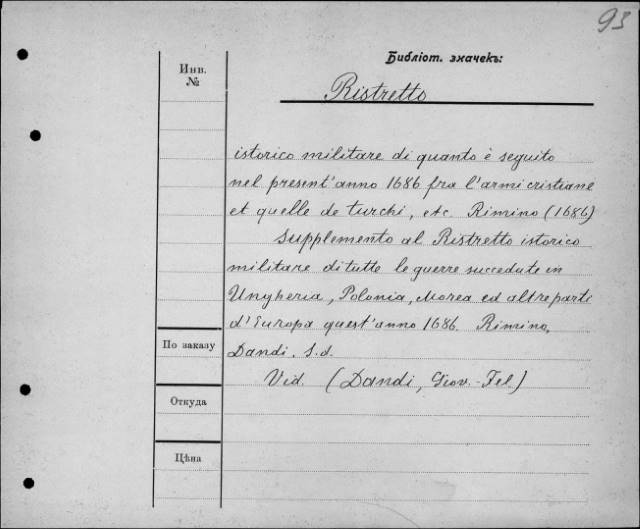 93
Библіот. значекъ:
Инв.
№
Ristretto
istorico militare di quanto è seguito
nel present'anno 1686 fra l'armi cristiane
et quelle de turchi, etc. Rimino (1686)
Supplemento al Ristretto istorico
militare di tutte le guerre succedute in
Ungheria, Polonia, Morea ed altre parti
d'Europa quest'anno 1686. Rimino,
По заказу
Dandi. S.d.
Vid. (Dandi, Giov.-Fel.)
Откуда
Цѣна